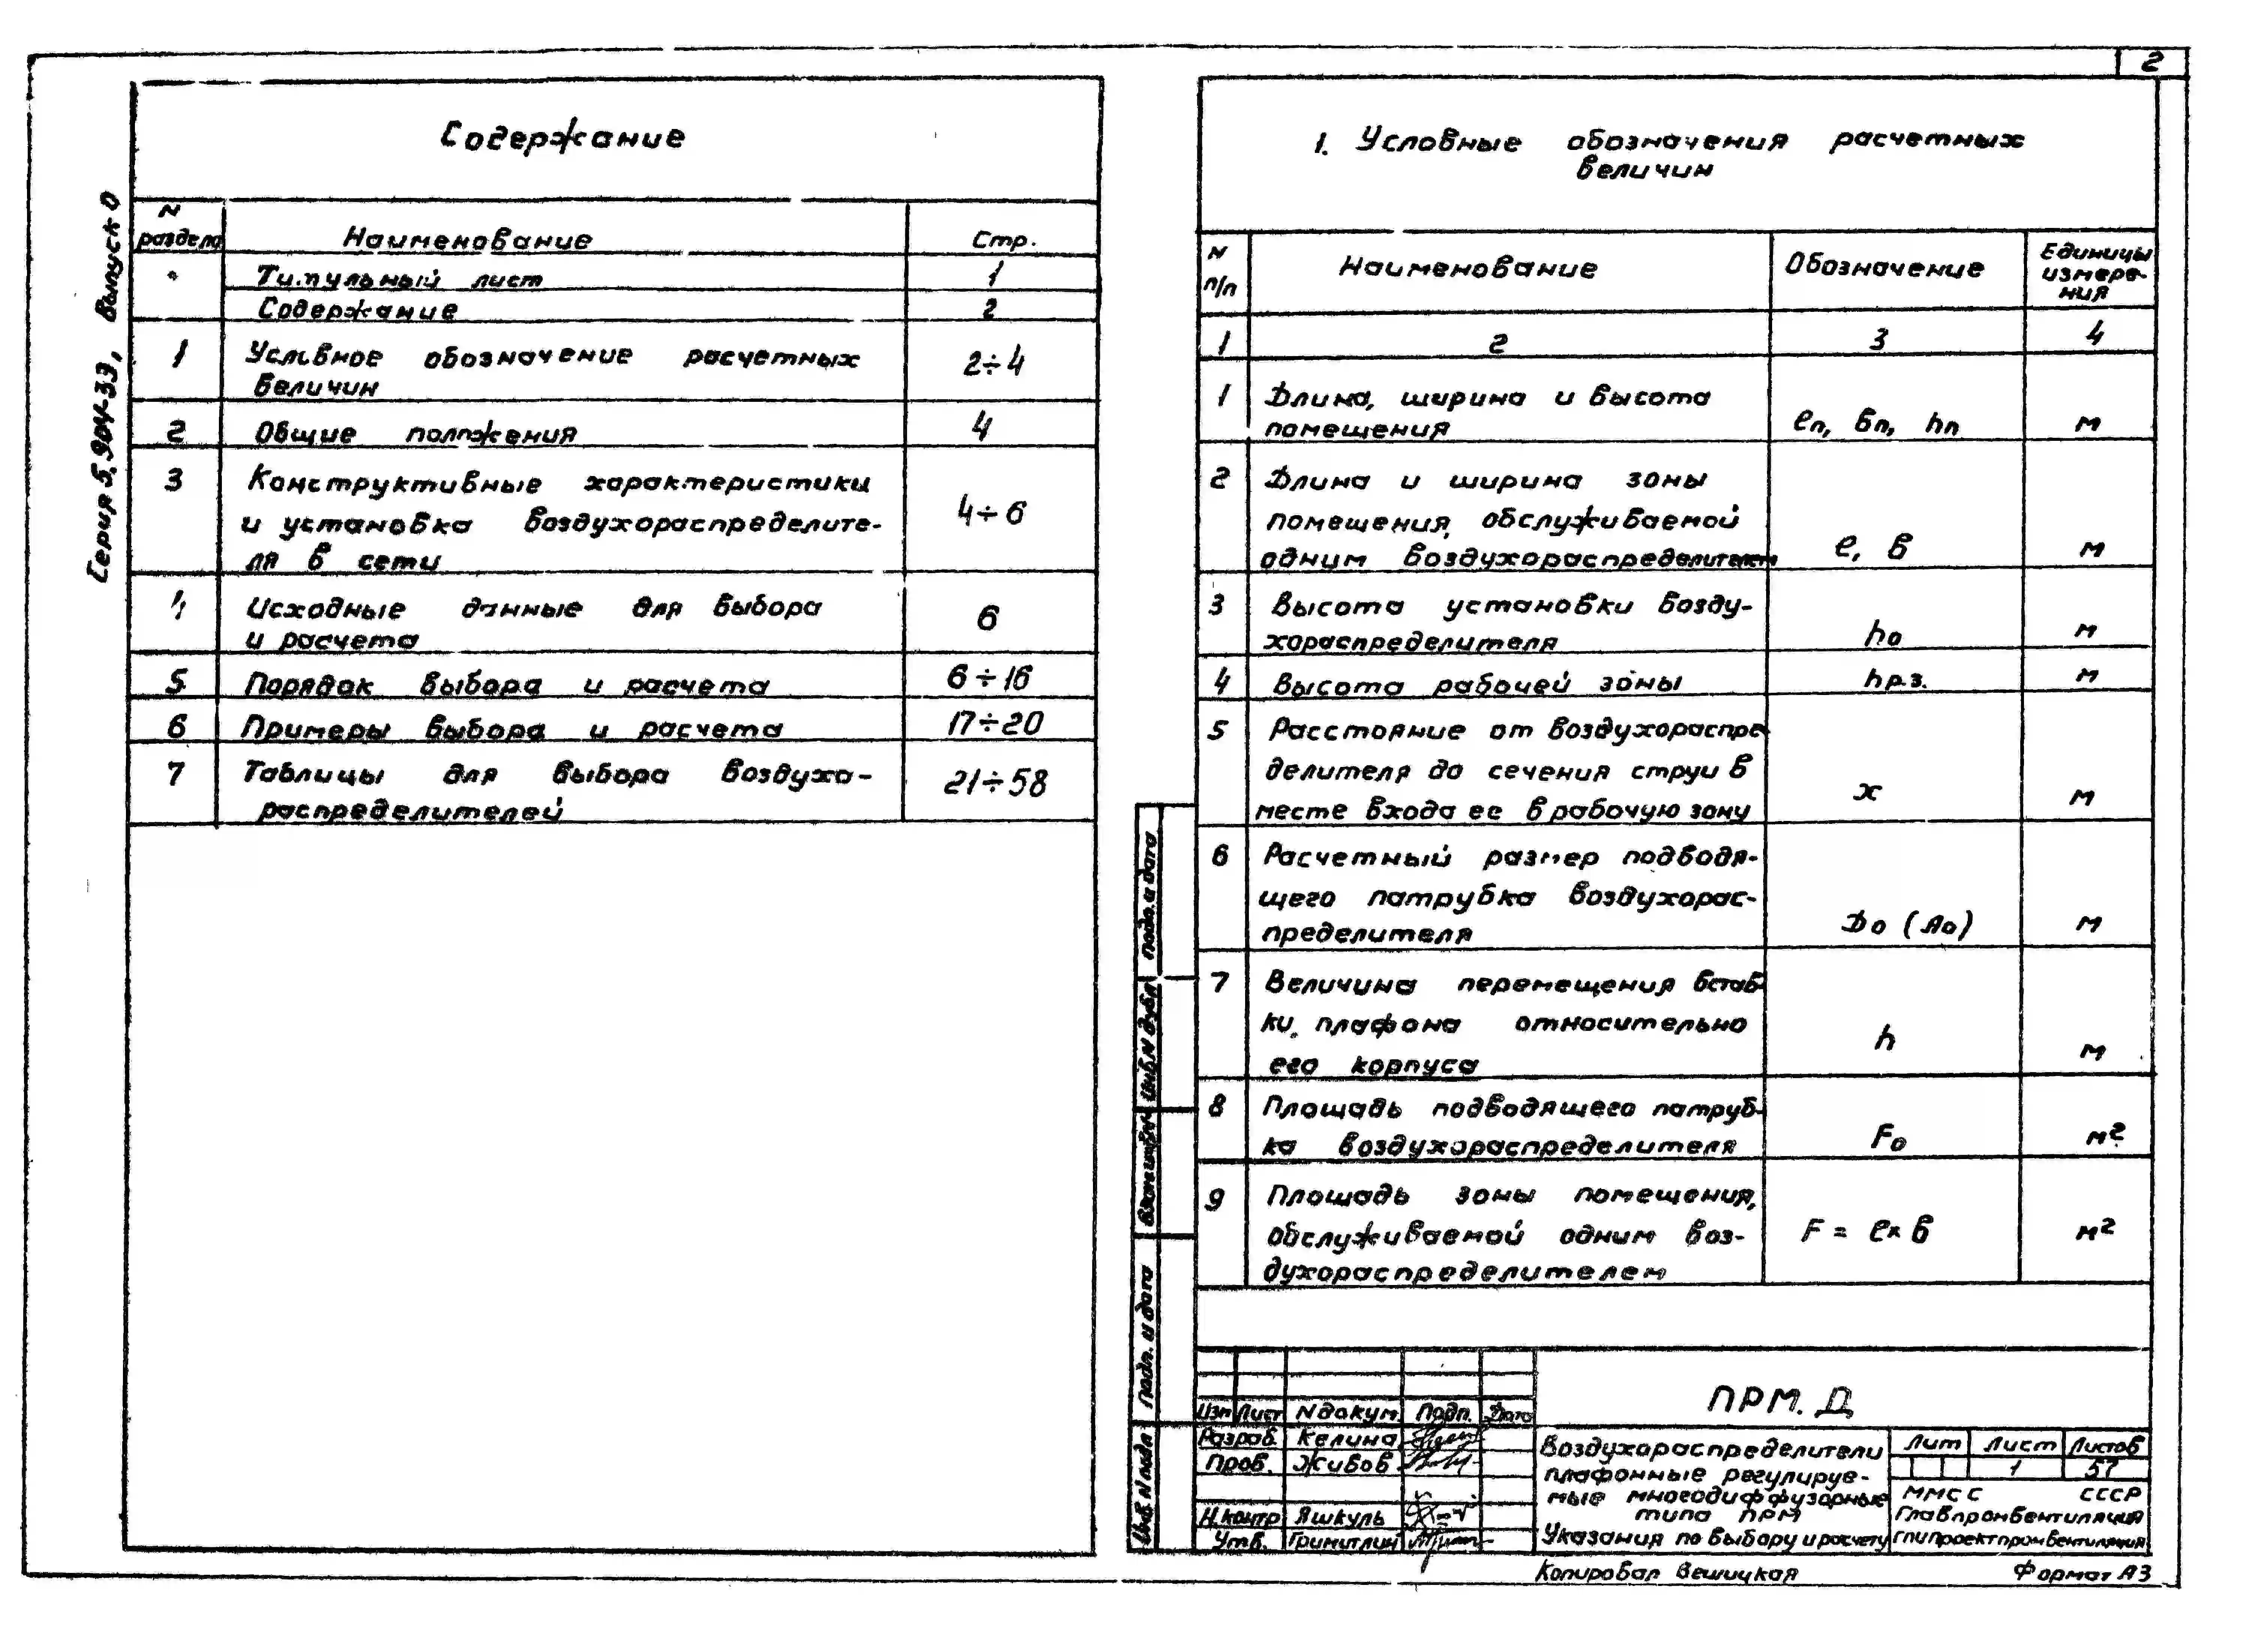 2
Серия 5.904-33, Выпуск 0
Содержание
N раздела
Наименование
Стр.
Титульный лист
1
Содержание
2
1
Условное обозначение расчетных
2÷4
величин
2
Общие положения
4
3
Конструктивные характеристики
и установка воздухораспределите-
4÷6
ля в сети
4
Исходные данные для выбора
6
и расчета
5
Порядок выбора и расчета
6÷16
6
Примеры выбора и расчета
17÷20
7
Таблицы для выбора воздухо-
21÷58
распределителей
1. Условные обозначения расчетных
величин
N п/п
Наименование
Обозначение
Единицы
измере-
ния
1
2
3
4
1
Длина, ширина и высота
помещения
ℓп, вп, hп
м
2
Длина и ширина зоны
помещения, обслуживаемой
одним воздухораспределителем
ℓ, в
м
3
Высота установки возду-
хораспределителя
hо
м
4
Высота рабочей зоны
hр.з.
м
5
Расстояние от воздухораспре
делителя до сечения струи в
месте входа ее в рабочую зону
x
м
6
Расчетный размер подводя-
щего патрубка воздухорас-
пределителя
Dо (Aо)
м
7
Величина перемещения встав-
ки плафона относительно
его корпуса
h
м
8
Площадь подводящего патруб-
ка воздухораспределителя
Fо
м²
9
Площадь зоны помещения,
обслуживаемой одним воз-
духораспределителем
F = ℓ×в
м²
подп. и дата
Инв. N дубл
Взам. инв. N
подп. и дата
Инв. N подл
Изм Лист N докум. Подп. Дата
Разраб. Келина
Пров. Живов
Н.контр Яшкуль
Утв. Гримитлин
ПРМ. Д
Воздухораспределители
плафонные регулируе-
мые многодиффузорные
типа ПРМ
Указания по выбору и расчету
Лит Лист Листов
1 57
ММСС СССР
Главпромвентиляция
ГПИ Проектпромвентиляция
Копировал Вешицкая
Формат А3